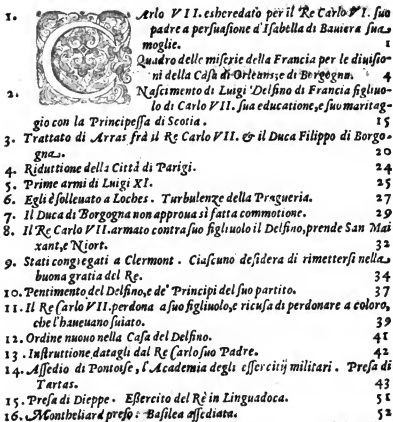 1. CArlo VII. esheredato per il Re Carlo VI. suo
padre a persuasione d'Isabella di Baviera sua
moglie. 1
Quadro delle miserie della Francia per le divisio-
ni della Casa di Orleans, e di Borgogna. 4
2. Nascimento di Luigi Delfino di Francia figliuo-
lo di Carlo VII. sua educatione, e suo maritag-
gio con la Principessa di Scotia. 15
3. Trattato di Arras frà il Re Carlo VII. & il Duca Filippo di Borgo-
gna. 20
4. Riduttione della Città di Parigi. 24
5. Prime armi di Luigi XI. 25
6. Egli è solleuato a Loches. Turbulenze della Pragueria. 27
7. Il Duca di Borgogna non approua sì fatta commotione. 29
8. Il Re Carlo VII. armato contra suo figliuolo il Delfino, prende San Mai
xant, e Niort. 32
9. Stati congregati a Clermont. Ciascuno desidera di rimettersi nella
buona gratia del Re. 34
10. Pentimento del Delfino, e de' Principi del suo partito. 37
11. Il Re Carlo VII. perdona a suo figliuolo, e ricusa di perdonare a coloro,
che l'haueuano suiato. 39
12. Ordine nuouo nella Casa del Delfino. 41
13. Instruttione, datagli dal Re Carlo suo Padre. 42
14. Assedio di Pontoise, l'Academia degli essercitij militari. Presa di
Tartas. 43
15. Presa di Dieppe. Esercito del Rè in Linguadoca. 51
16. Montheliard preso: Basilea assediata. 52